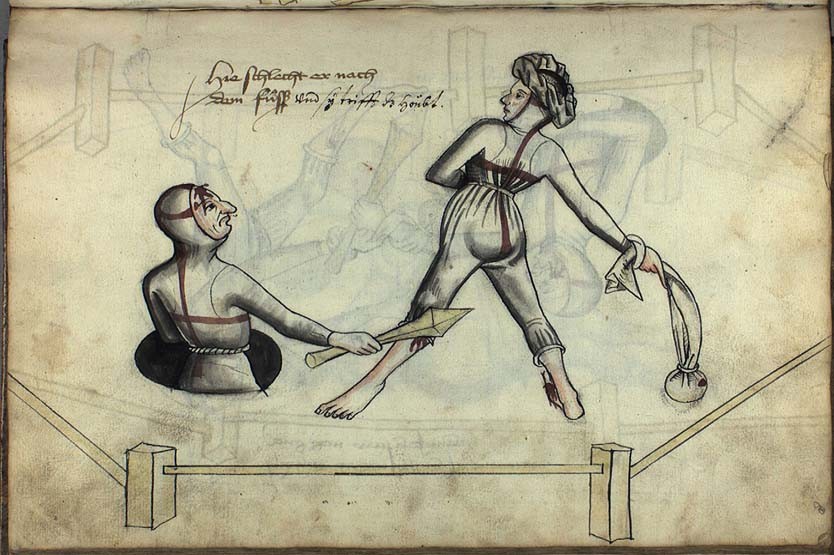 Hie schlecht er nach
dem fůſß vnd sy trifft dz höubt.